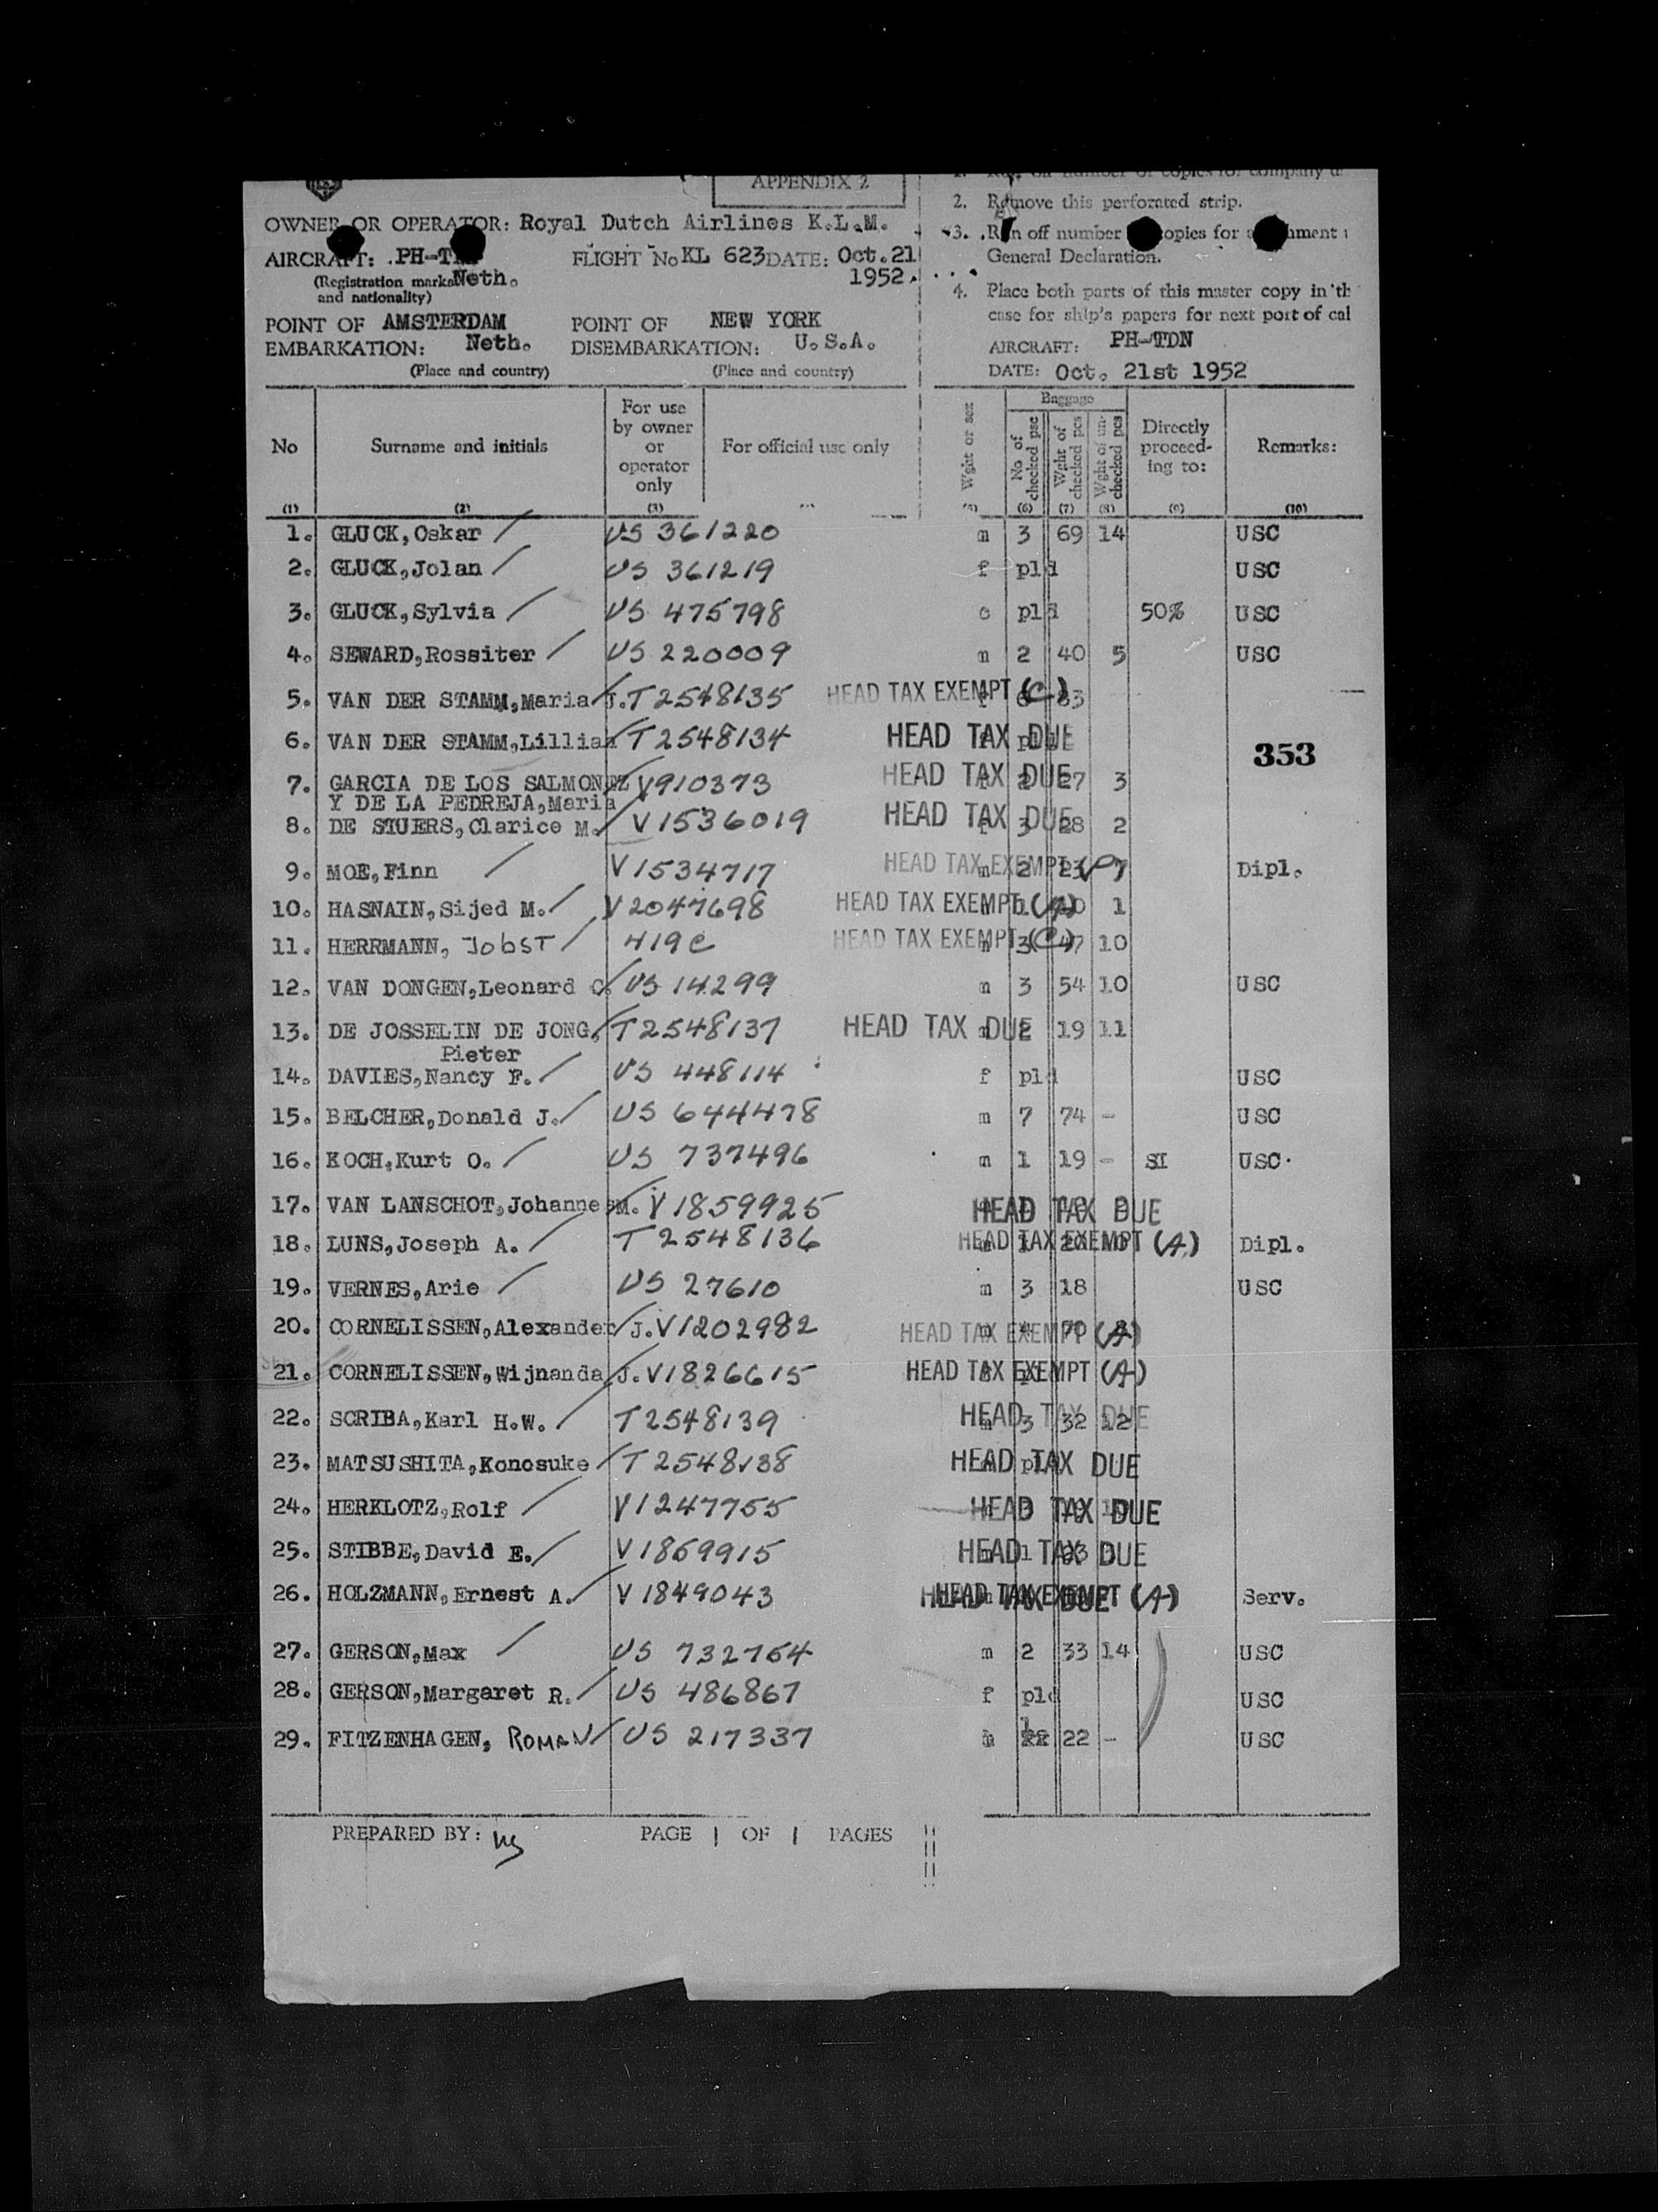 APPENDIX 2
OWNER OR OPERATOR: Royal Dutch Airlines K.L.M.
AIRCRAFT: PH-T FLIGHT No KL 623 DATE: Oct. 21
(Registration marks Neth. 1952.
and nationality)
POINT OF AMSTERDAM POINT OF NEW YORK
EMBARKATION: Neth. DISEMBARKATION: U.S.A.
(Place and country) (Place and country)
2. Remove this perforated strip.
3. Run off number copies for
General Declaration.
4. Place both parts of this master copy in th
case for ship's papers for next port of cal
AIRCRAFT: PH-TDN
DATE: Oct. 21st 1952
No Surname and initials For use by owner or operator only For official use only Wght or sex Baggage No of checked psc Wght of checked pcs Wght of un-checked pcs Directly proceed-ing to: Remarks:
(1) (2) (3) (5) (6) (7) (8) (9) (10)
1. GLUCK, Oskar / US 361220 m 3 69 14 USC
2. GLUCK, Jolan / US 361219 f pld USC
3. GLUCK, Sylvia / US 475798 c pld 50% USC
4. SEWARD, Rossiter / US 220009 m 2 40 5 USC
5. VAN DER STAMM, Maria J. T2548135 HEAD TAX EXEMPT (C)
6. VAN DER STAMM, Lillian T2548134 HEAD TAX DUE
353
7. GARCIA DE LOS SALMONEZ V910373 HEAD TAX DUE 27 3
Y DE LA PEDREJA, Maria
8. DE STUERS, Clarice M. / V1536019 HEAD TAX DUE 3 28 2
9. MOE, Finn / V1534717 HEAD TAX EXEMPT 2 23 Dipl.
10. HASNAIN, Sijed M. / V2047698 HEAD TAX EXEMPT (A) 1
11. HERRMANN, Jobst / 419c HEAD TAX EXEMPT (C) 3 47 10
12. VAN DONGEN, Leonard C. / US 14299 m 3 54 10 USC
13. DE JOSSELIN DE JONG, / T2548137 HEAD TAX DUE 2 19 11
Pieter
14. DAVIES, Nancy F. / US 448114 f pld USC
15. BELCHER, Donald J. / US 644478 m 7 74 - USC
16. KOCH, Kurt O. / US 737496 m 1 19 - SI USC
17. VAN LANSCHOT, Johannes M. V1859925 HEAD TAX DUE
18. LUNS, Joseph A. / T2548136 HEAD TAX EXEMPT (A) Dipl.
19. VERNES, Arie / US 27610 m 3 18 USC
20. CORNELISSEN, Alexander J. V1202982 HEAD TAX EXEMPT (A)
21. CORNELISSEN, Wijnanda J. V1826615 HEAD TAX EXEMPT (A)
22. SCRIBA, Karl H.W. / T2548139 HEAD TAX DUE 3 32 12
23. MATSUSHITA, Konosuke / T2548138 HEAD TAX DUE
24. HERKLOTZ, Rolf / V1247755 HEAD TAX DUE
25. STIBBE, David E. / V1869915 HEAD TAX DUE
26. HOLZMANN, Ernest A. / V1849043 HEAD TAX EXEMPT (A) Serv.
27. GERSON, Max / US 732764 m 2 33 14 USC
28. GERSON, Margaret R. / US 486867 f pld USC
29. FITZENHAGEN, ROMAN / US 217337 m 1 22 - USC
PREPARED BY: PAGE 1 OF 1 PAGES